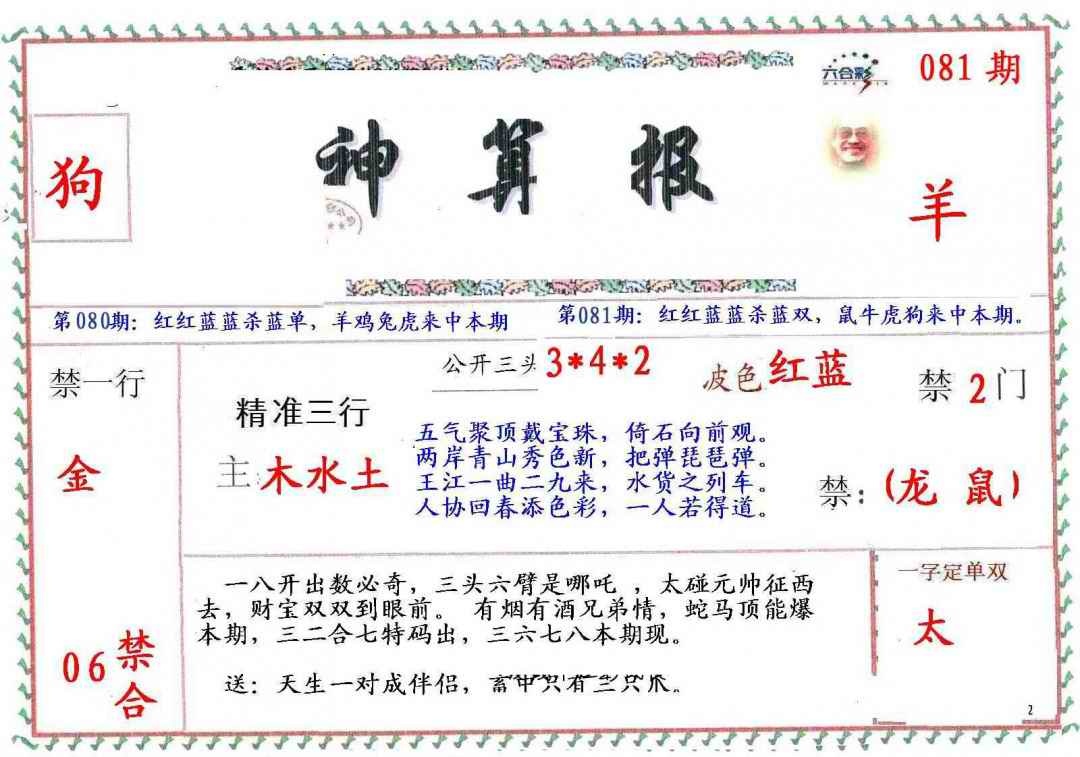 六合彩
081 期
狗
神算报
羊
第080期：红红蓝蓝杀蓝单，羊鸡兔虎来中本期
第081期：红红蓝蓝杀蓝双，鼠牛虎狗来中本期。
禁一行
金
06 禁合
精准三行
主：木水土
公开三头 3*4*2
波色 红蓝
禁 2 门
五气聚顶戴宝珠，倚石向前观。
两岸青山秀色新，把弹琵琶弹。
王江一曲二九来，水货之列车。
人协回春添色彩，一人若得道。
禁：(龙 鼠)
一八开出数必奇，三头六臂是哪吒 ，太碰元帅征西
去，财宝双双到眼前。 有烟有酒兄弟情，蛇马顶能爆
本期，三二合七特码出，三六七八本期现。
送：天生一对成伴侣，
一字定单双
太
2